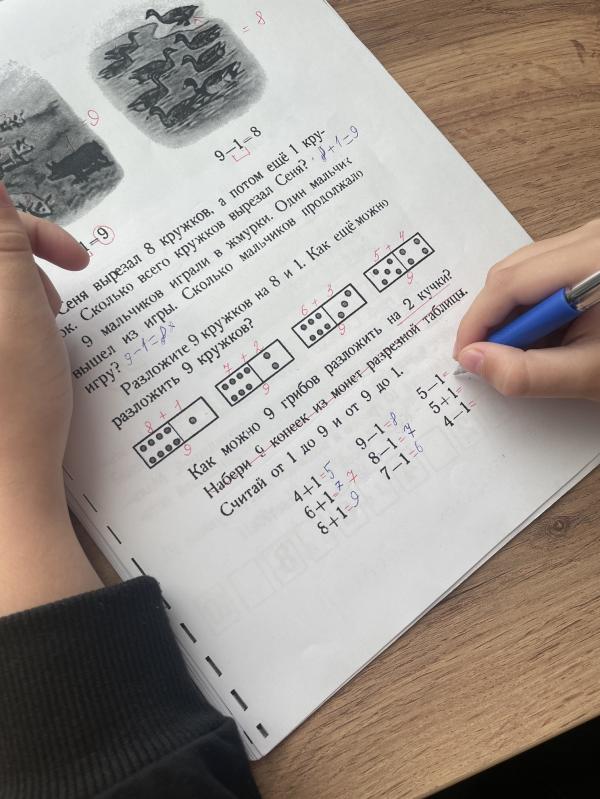 = 8
= 9
9−1=8
1=9
Сеня вырезал 8 кружков, а потом ещё 1 кру-
ок. Сколько всего кружков вырезал Сеня? 8+1=9
9 мальчиков играли в жмурки. Один мальчик
вышел из игры. Сколько мальчиков продолжало
игру? 9−1=8
Разложите 9 кружков на 8 и 1. Как ещё можно
разложить 9 кружков?
8 + 1
9
7 + 2
9
6 + 3
9
5 + 4
9
Как можно 9 грибов разложить на 2 кучки?
Набери 9 копеек из монет разрезной таблицы.
Считай от 1 до 9 и от 9 до 1.
4+1=5 9−1=8 5−1=
6+1=7 7 8−1=7 5+1=
8+1=9 7−1=6 4−1=